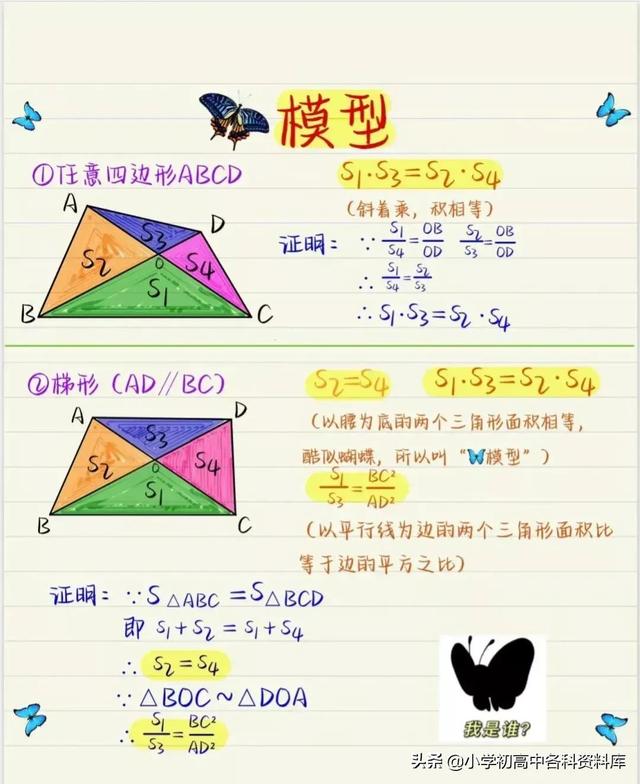 模型
①任意四边形ABCD
S₁·S₃=S₂·S₄
(斜着乘,积相等)
A
D
S₃
S₂
O
S₄
S₁
B
C
证明: ∵ S₁/S₄=OB/OD S₂/S₃=OB/OD
∴ S₁/S₄=S₂/S₃
∴ S₁·S₃=S₂·S₄
②梯形(AD∥BC)
S₂=S₄ S₁·S₃=S₂·S₄
A
D
S₃
S₂
O
S₄
S₁
B
C
(以腰为底的两个三角形面积相等,
酷似蝴蝶,所以叫“模型”)
S₁/S₃=BC²/AD²
(以平行线为边的两个三角形面积比
等于边的平方之比)
证明: ∵ S△ABC=S△BCD
即 S₁+S₂=S₁+S₄
∴ S₂=S₄
∵ △BOC~△DOA
∴ S₁/S₃=BC²/AD²
我是谁?
头条 @小学初高中各科资料库